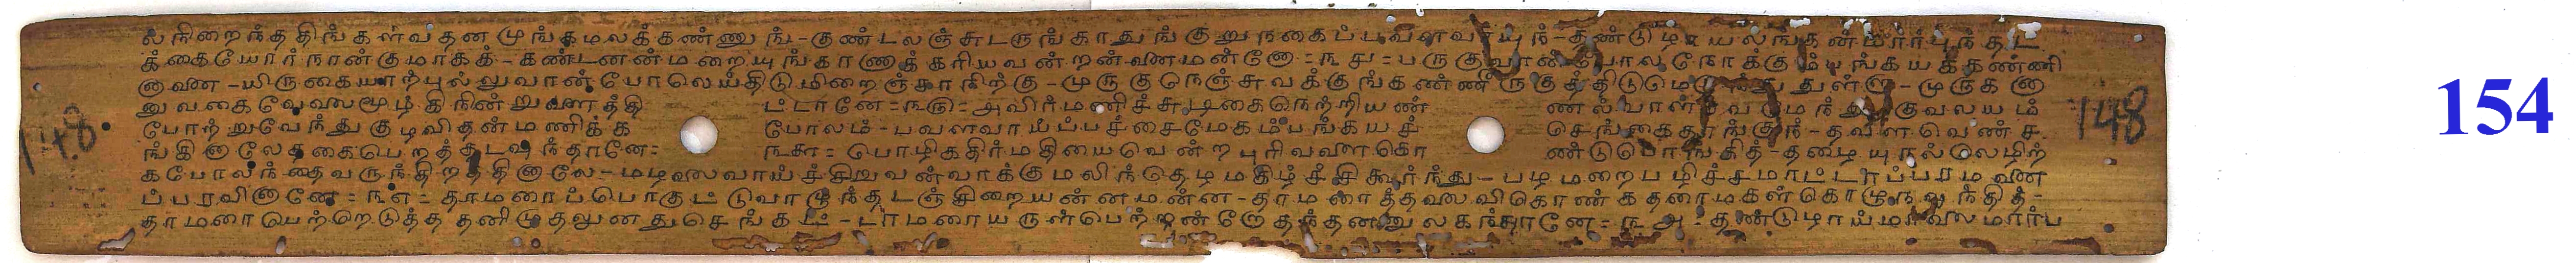 ல நிறைந்ததிங்கள்வதன முங்கமலக்கண்ணு ங் - குண்டலஞ்சுடருங்காதுங்குறுநகைப்பவளவாயுந் - தண்டுழாயலங்கன்மார்புந்தட
க்கையோர்நான்குமாகக் - கண்டனன்மறையுங்காணாக்கரியவன்றன்னைமன்னோ = ௩௪ = பருகுவான்போலநோக்கும்பங்கயக்கண்ணி
னானை - யிருகையாற்புல்லுவான்போலெய்திடுமிறைஞ்சாநிற்கு - முருகுநெஞ்சுவக்குங்கண்ணீருகுத்திடு துள்ளு - முருகனா
னுவகைவேலைமூழ்கிநின்றுவளாத்தி ட்டானே = ௩௫ = அவிர்மணிச்சுடிகைநெற்றியண் ணல்வாள் குவலயம்
போற்றுவேந்துகுழவிதன்மணிக்க போலம் - பவளவாய்ப்பச்சைமேகம்பங்கயச் செங்கைதாங்குந் - தவளவெண்ச
ங்கினாலே தகைபெறத்தடவந்தானே = ௩௬ = பொழிகதிர்மதியையவென்றபுரிவளைகொ ண்டுபொங்கித் - தழையுநல்லெழிற்
கபோலந்தைவருந்திறத்தினாலே - மழலைவாய்ச்சிறுவன்வாக்குமலிந்தெழமகிழ்ச்சிகூர்ந்து - பழமறைபழிச்சமாட்டாப்பரமனை
ப்பரவினானே = ௩௭ = தாமரைப்பொகுட்டுவாழுந்தடஞ்சிறையன்னமன்ன - தாமரைத்தலைவிகொண்கதரைமகள்கொழுநநுந்தித் -
தாமரைபெற்றெடுத்ததனிமுதலுனதுசெங்கட் - டாமரையருள்பெற்றன்றேதந்தனனுலகந்தானே = ௩௮ = தண்டுழாய்மாலைமார்ப
148
148
154